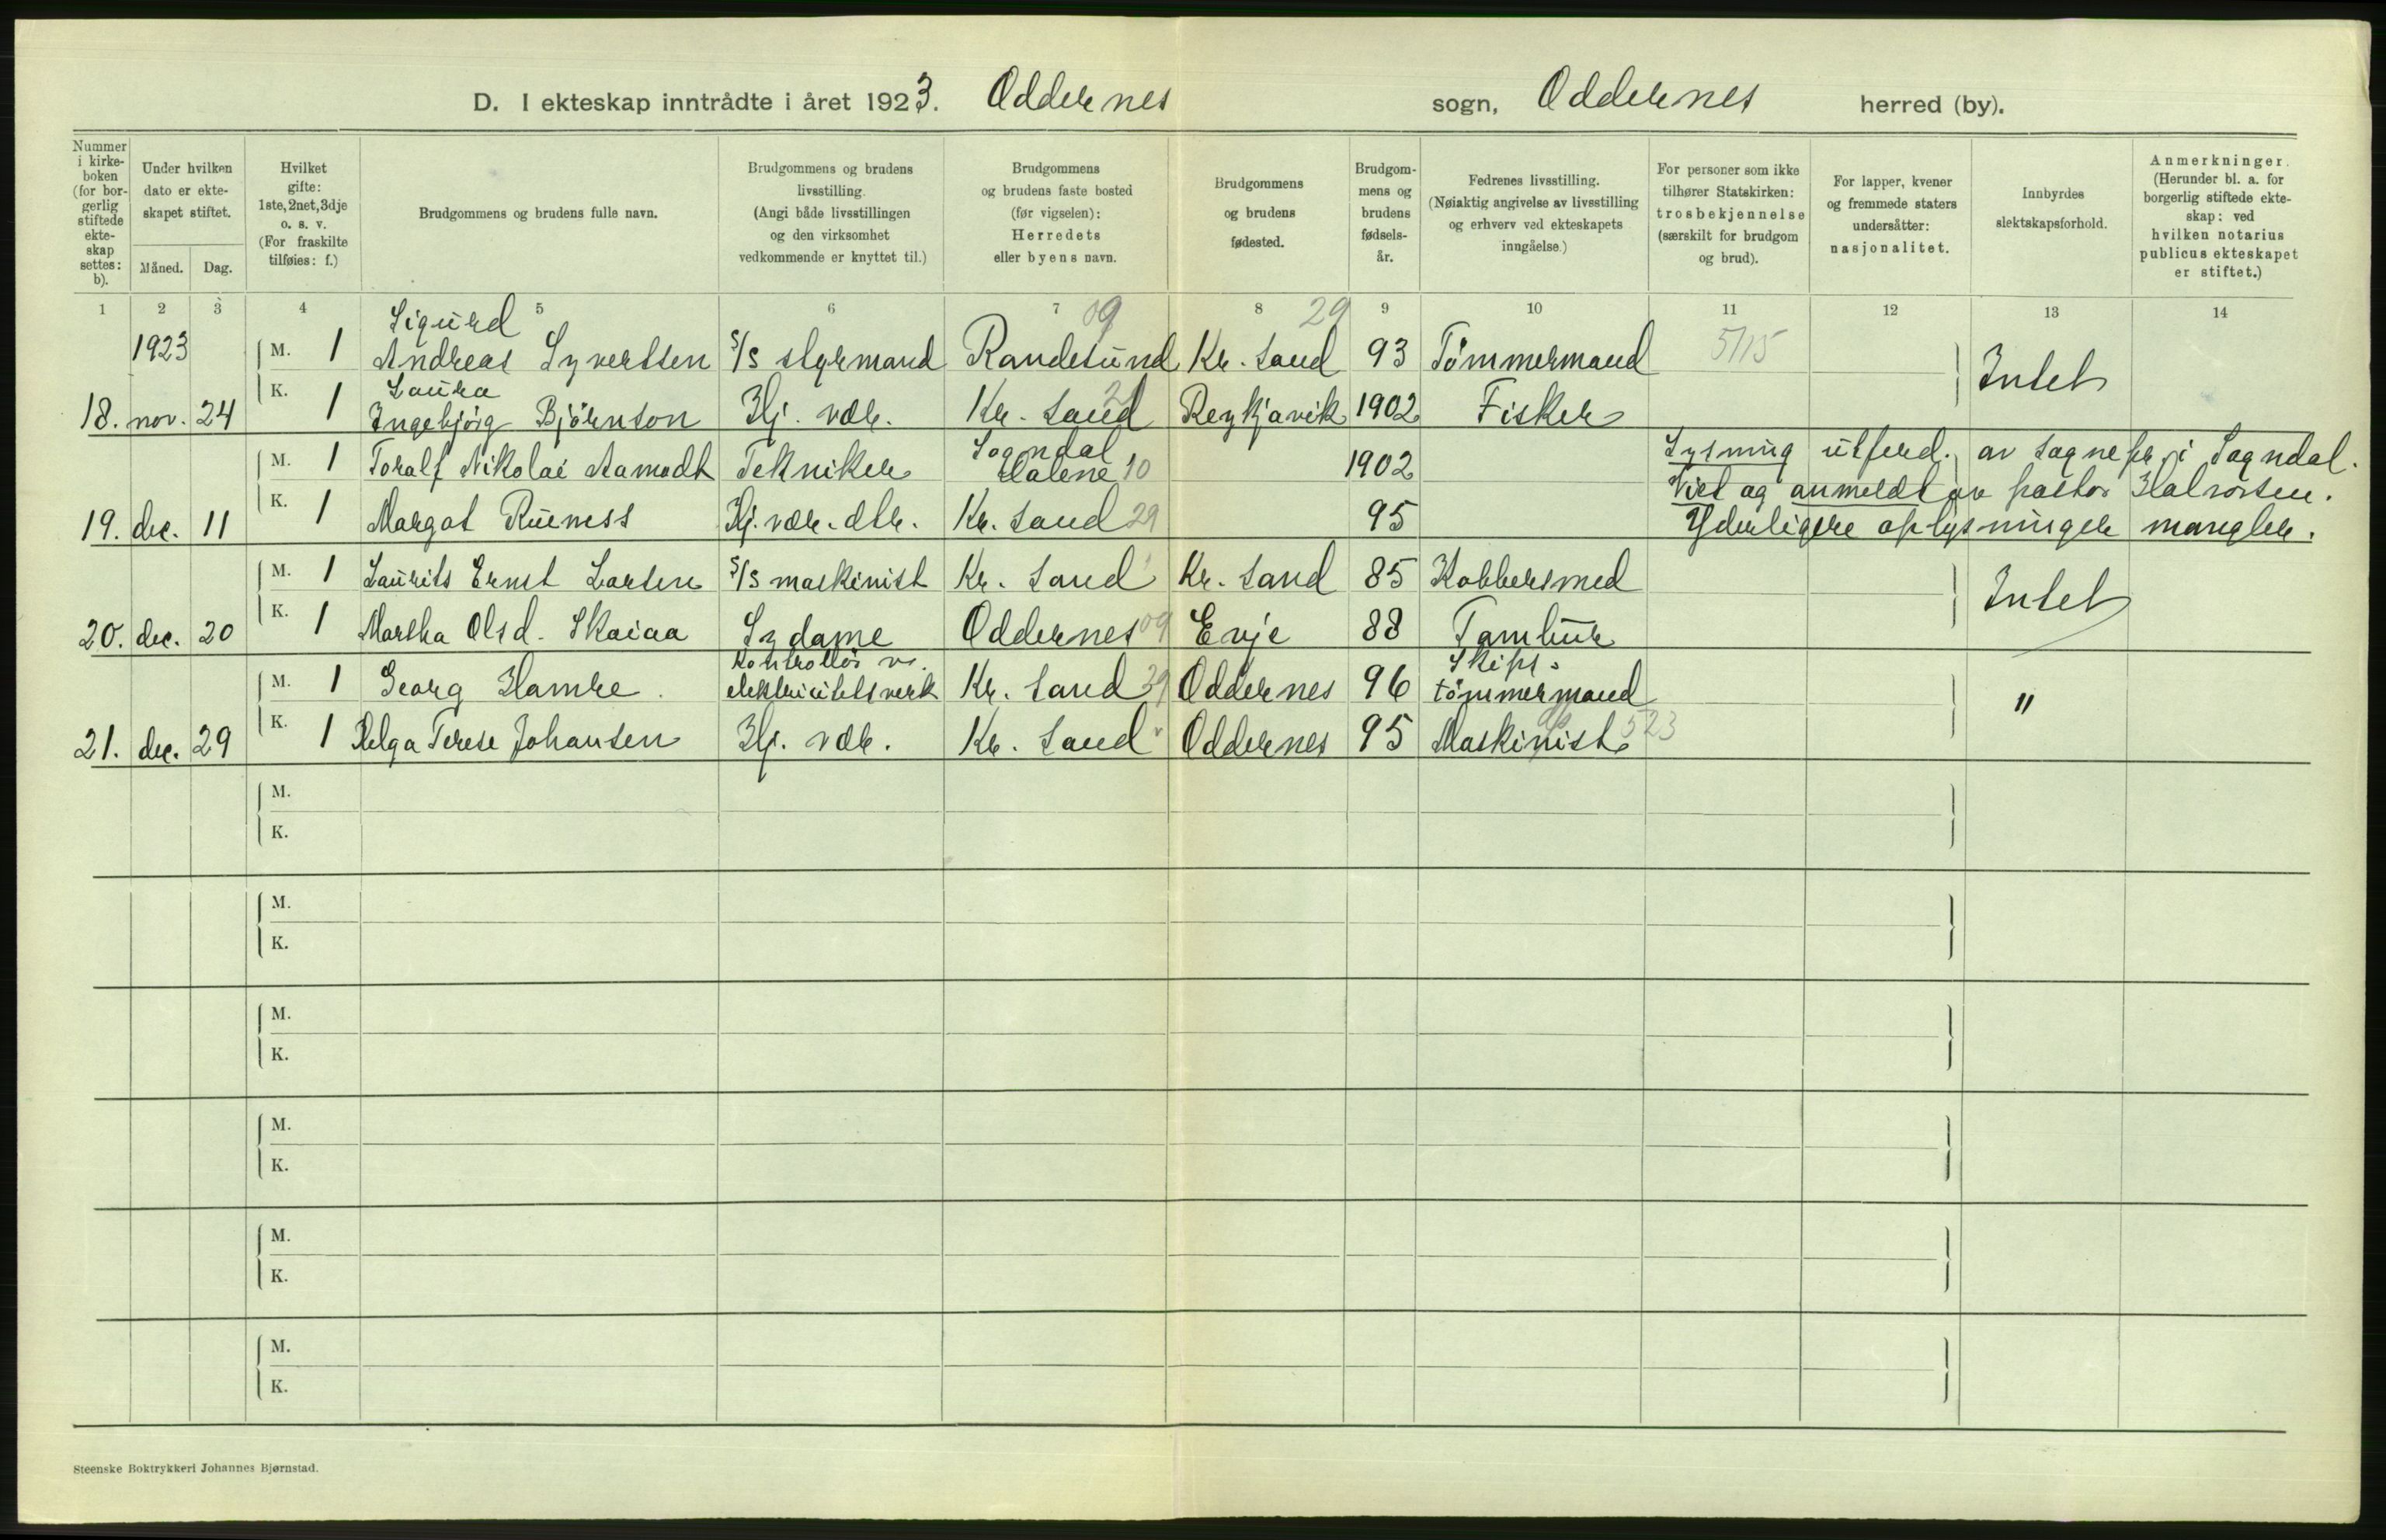 D. I ekteskap inntrådte i året 1923. Oddernes sogn, Oddernes herred (by).
Nummer i kirkeboken (for borgerlig stiftede ekteskap settes: b).
Under hvilken dato er ekteskapet stiftet.
Måned. Dag.
Hvilket gifte: 1ste, 2net, 3dje o. s. v. (For fraskilte tilføies: f.)
Brudgommens og brudens fulle navn.
Brudgommens og brudens livsstilling. (Angi både livsstillingen og den virksomhet vedkommende er knyttet til.)
Brudgommens og brudens faste bosted (før vigselen): Herredets eller byens navn.
Brudgommens og brudens fødested.
Brudgommens og brudens fødselsår.
Fedrenes livsstilling. (Nøiaktig angivelse av livsstilling og erhverv ved ekteskapets inngåelse.)
For personer som ikke tilhører Statskirken: trosbekjennelse (særskilt for brudgom og brud).
For lapper, kvener og fremmede staters undersåtter: nasjonalitet.
Innbyrdes slektskapsforhold.
Anmerkninger. (Herunder bl. a. for borgerlig stiftede ekteskap: ved hvilken notarius publicus ekteskapet er stiftet.)
1 2 3 4 5 6 7 8 9 10 11 12 13 14
09 29
1923 M. 1 Sigurd Andreas Syvertsen S/S styrmand Randesund Kr. sand 93 Tömmermand 5/15
18. nov. 24 K. 1 Laura Ingebjörg Björnson Hj. vær. Kr. sand Reykjavik 1902 Fisker Intet
M. 1 Toralf Nikolai Aamodt Tekniker Sogndal Dalene 10 1902 Lysning utferd. av sognepr. i Sogndal.
19. dec. 11 K. 1 Margot Rueness Hj. vær. dtr. Kr. sand 29 95 Viet og anmeldt av pastor Halvorsen.
Yderligere oplysninger mangler.
M. 1 Laurits Ernst Larsen S/S maskinist Kr. sand Kr. sand 85 Kobbersmed
20. dec. 20 K. 1 Martha Olsd. Skaiaa Sydame Oddernes 09 Evje 88 Tambur Intet
M. 1 Georg Hamre. Kontrollör v. elektricitetsverk Kr. sand 29 Oddernes 96 Skipstömmermand
21. dec. 29 K. 1 Helga Terese Johansen Hj. vær. Kr. sand Oddernes 95 Maskinist 523 "
M.
K.
M.
K.
M.
K.
M.
K.
M.
K.
M.
K.
Steenske Boktrykkeri Johannes Bjørnstad.